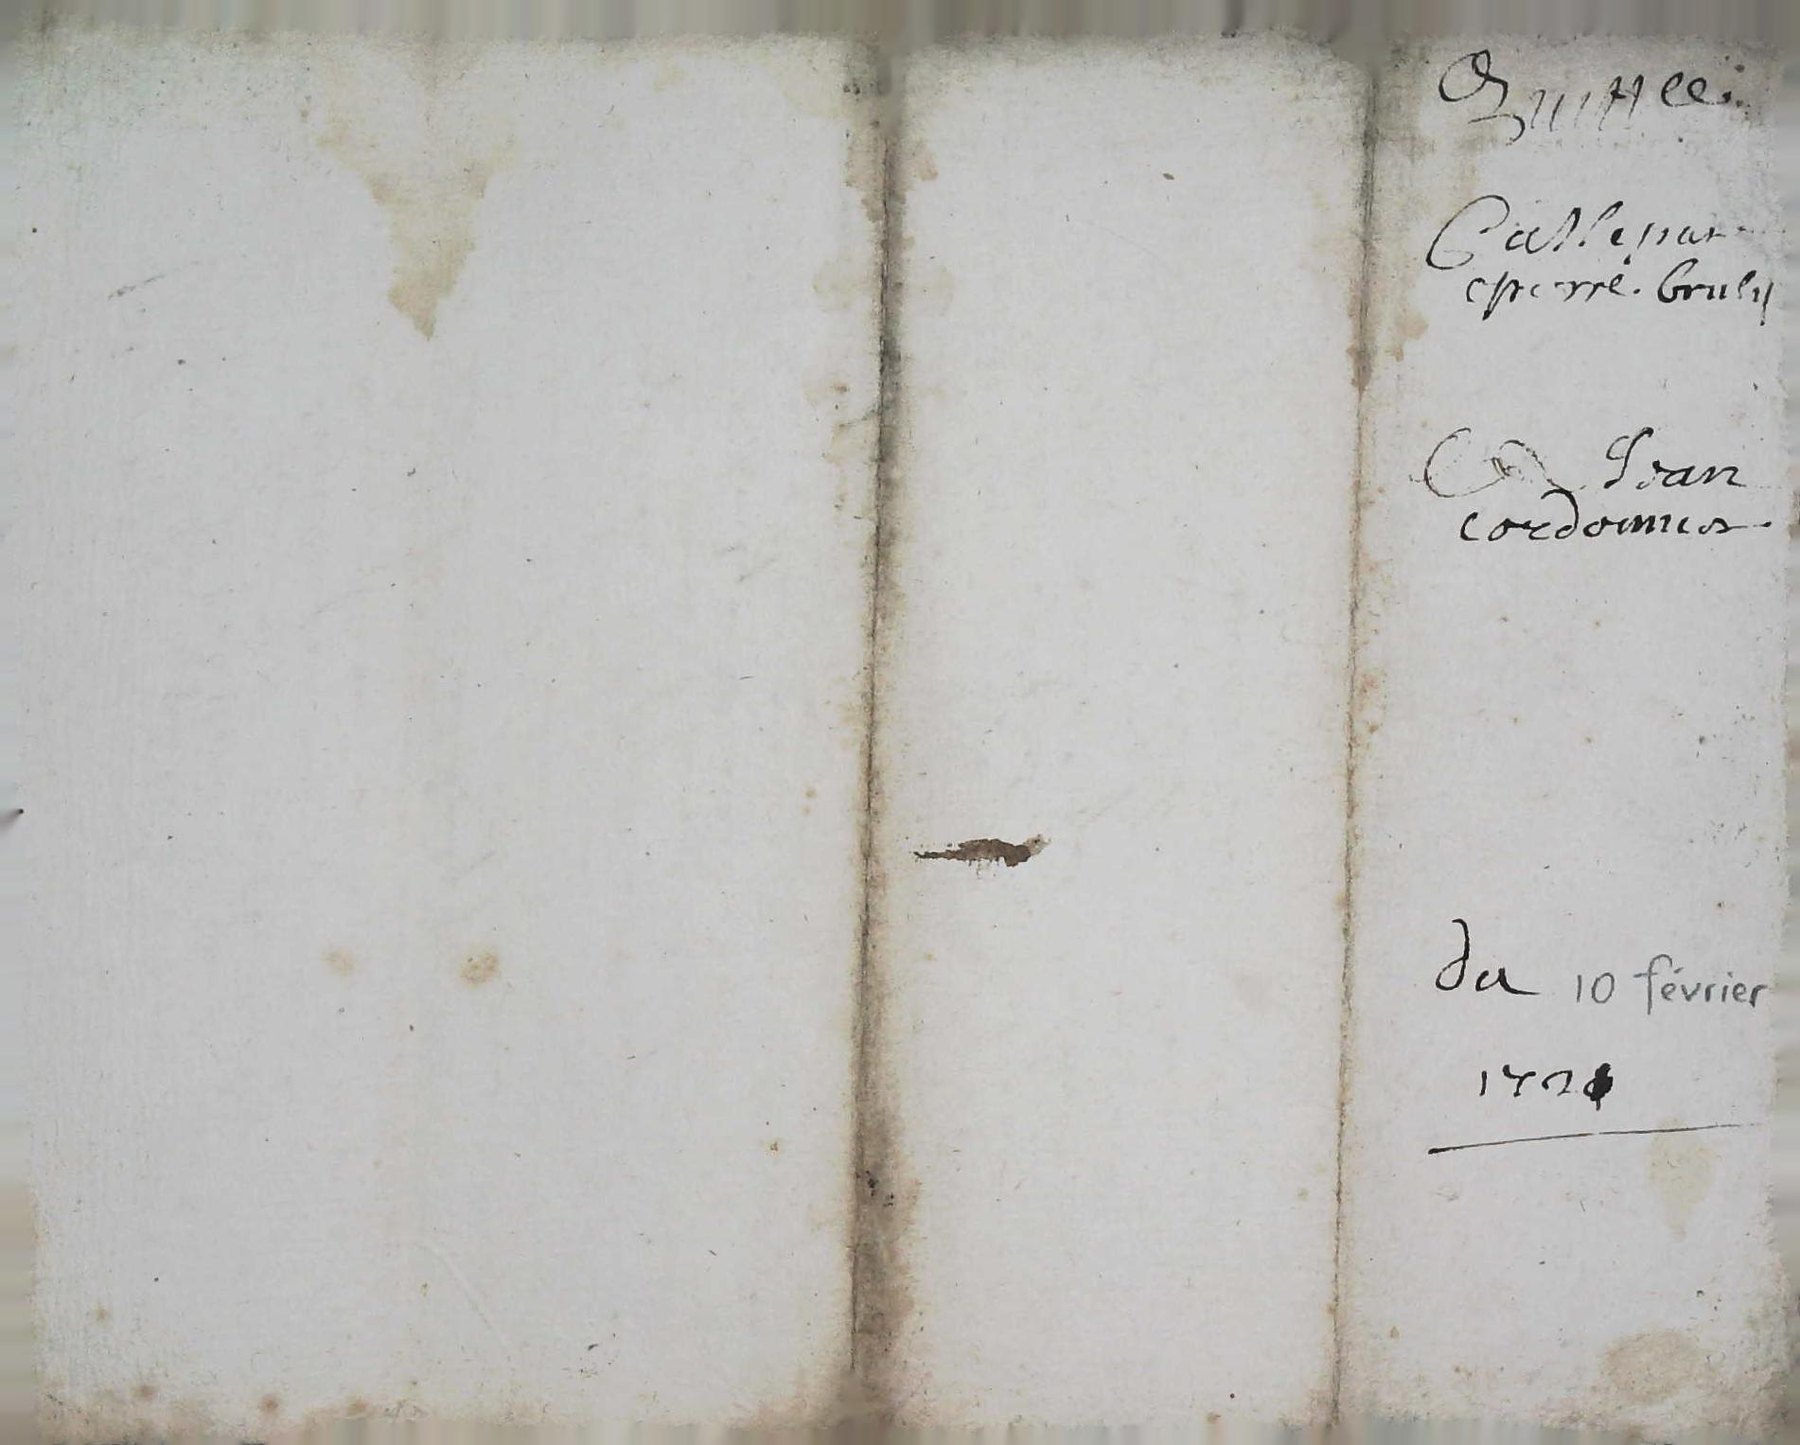 Quittce
faitte par
pierre. bruly
A Jean
cordonnier.
du 10 février
172